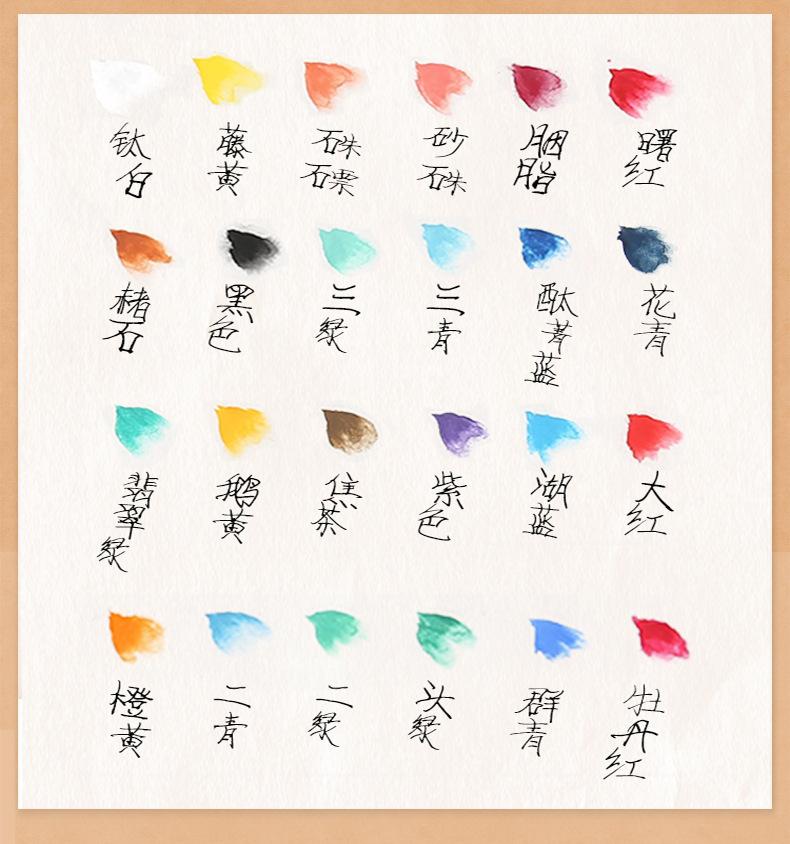 钛白
藤黄
硃磦
砂硃
胭脂
曙红
楮石
黑色
三绿
三青
酞菁蓝
花青
翡翠绿
鹅黄
焦茶
紫色
湖蓝
大红
橙黄
二青
二绿
头绿
群青
牡丹红